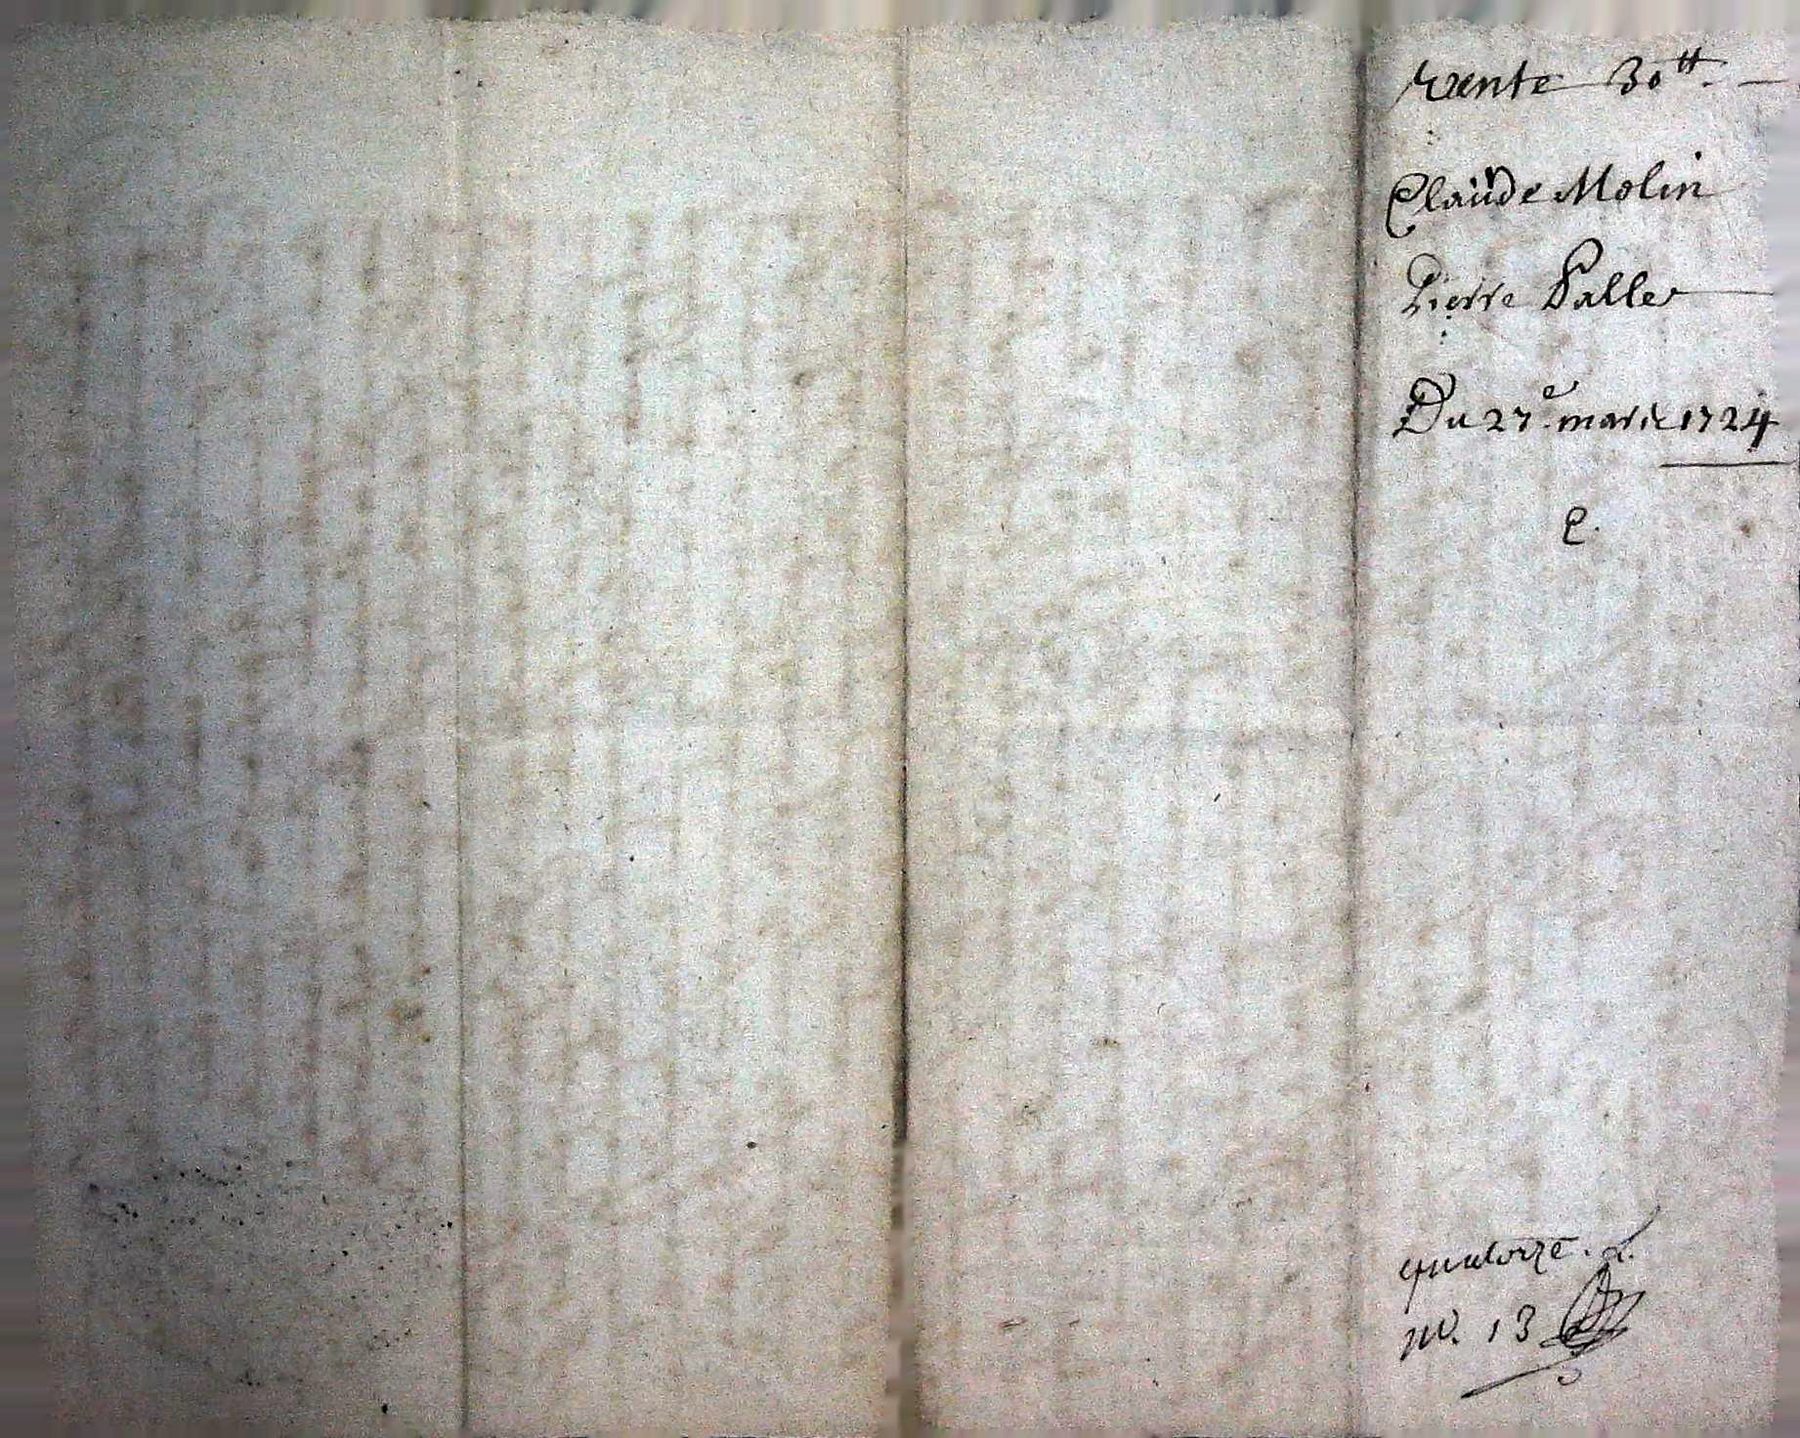 vente 30tt.
Claude Molin
Pierre Palle
Du 27e mars 1724
C.
quatorze.
no. 13